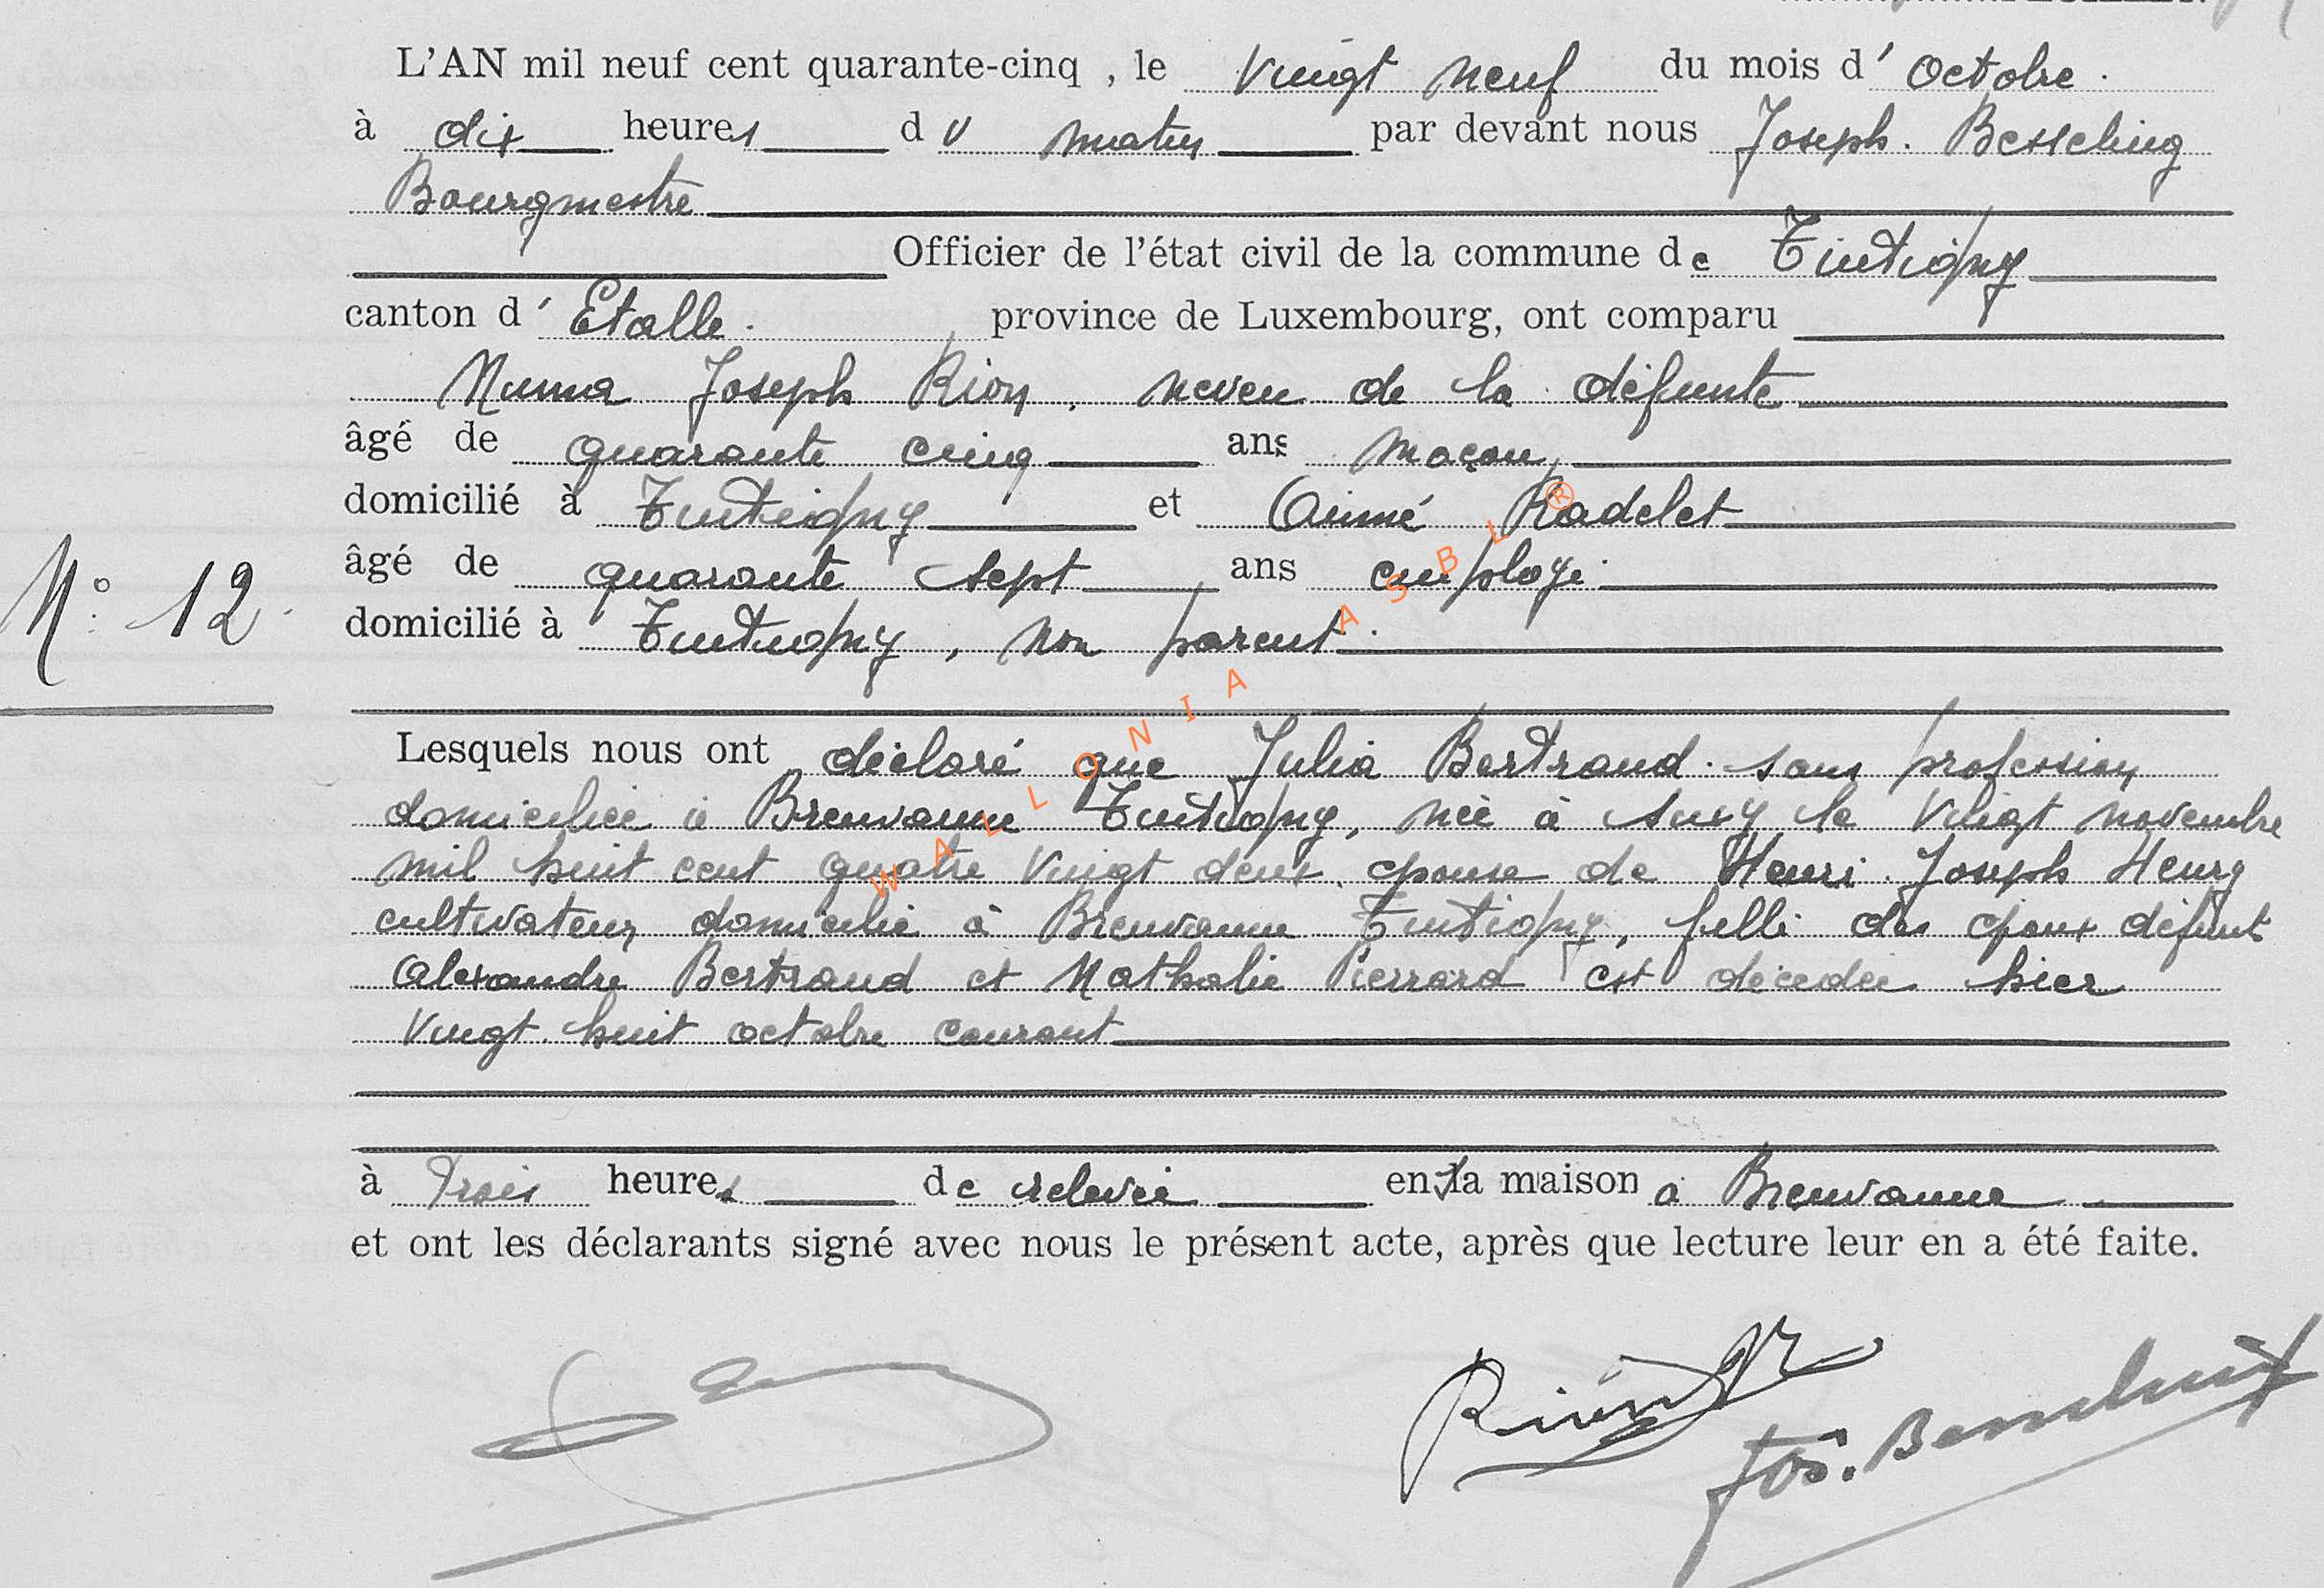 L'AN mil neuf cent quarante-cinq , le Vingt neuf du mois d' Octobre .
à dix heures du matin par devant nous Joseph. Besseling
Bourgmestre
Officier de l'état civil de la commune de Tintigny
canton d' Etalle. province de Luxembourg, ont comparu
Numa Joseph Rion, neveu de la défunte
âgé de quarante cinq ans maçon,
domicilié à Tintigny et Aimé Radelet
âgé de quarante sept ans employé.
N° 12.
domicilié à Tintigny, non parent.
Lesquels nous ont déclaré que Julia Bertrand. sans profession
domiciliée à Breuvanne Tintigny, née à Suxy le Vingt novembre
mil huit cent quatre Vingt deux. épouse de Henri. Joseph Henry
cultivateur domicilié à Breuvanne Tintigny, fille des époux défunts
Alexandre Bertrand et Nathalie Pierrard est décédée hier
Vingt. huit octobre courant
à Trois heures de relevée en la maison à Breuvanne
et ont les déclarants signé avec nous le présent acte, après que lecture leur en a été faite.
Rion
Jos.
WALLONIA ASBL ®